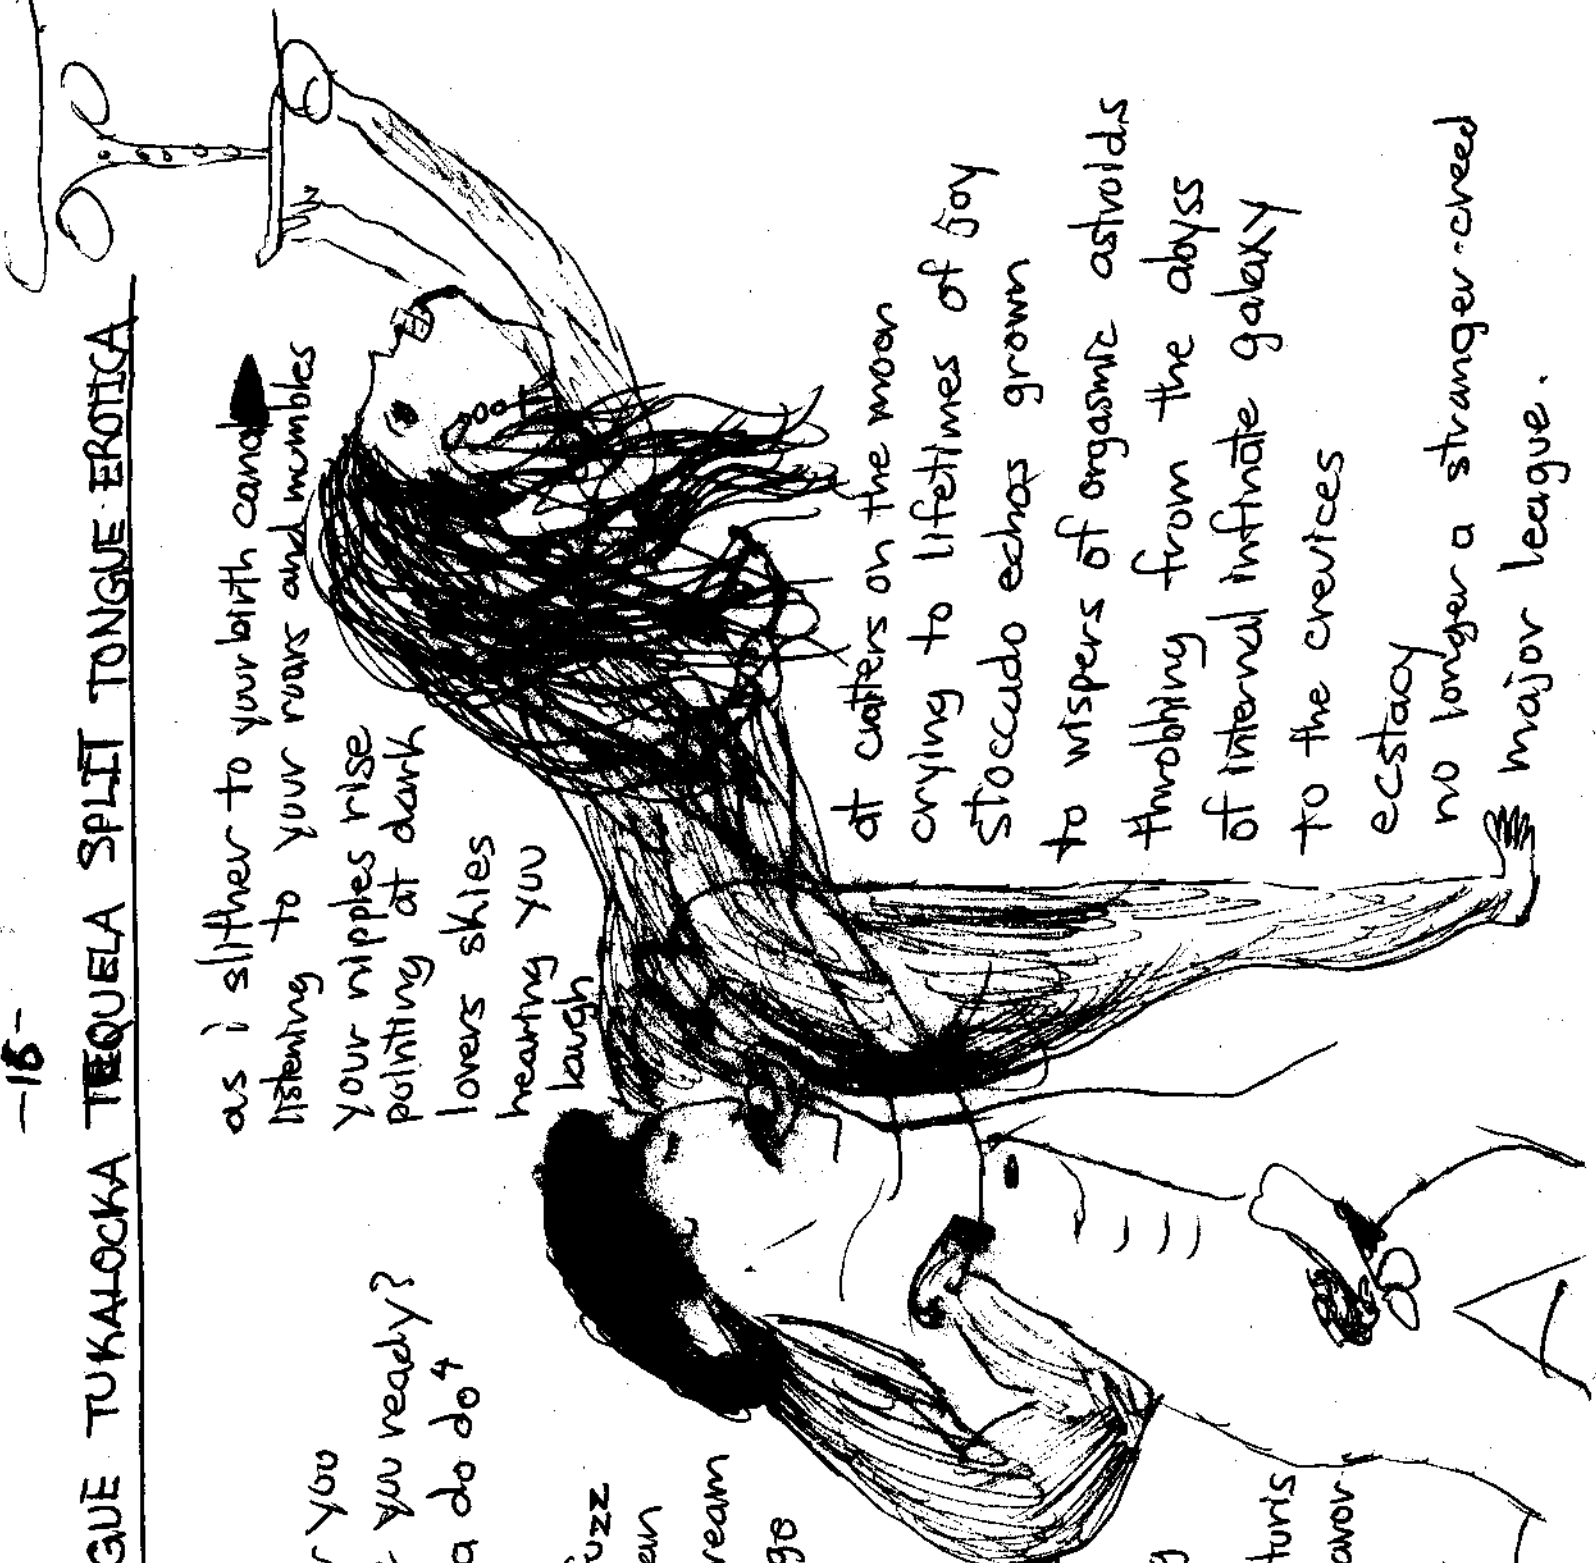 -18-
GUE TUKALOCKA TEQUELA SPLIT TONGUE EROTICA
you
you ready?
a do do 4
fuzz
en
ream
go
turis
avor
as i slither to your birth canal
listening to your roars and mumbles
your nipples rise
pointing at dark
lovers skies
hearing you
laugh
at craters on the moon
crying to lifetimes of joy
stoccado echos grown
to wispers of orgasmic astroids
throbbing from the abyss
of internal infinate galaxy
to the crevices
ecstacy
no longer a stranger-creed
major league.